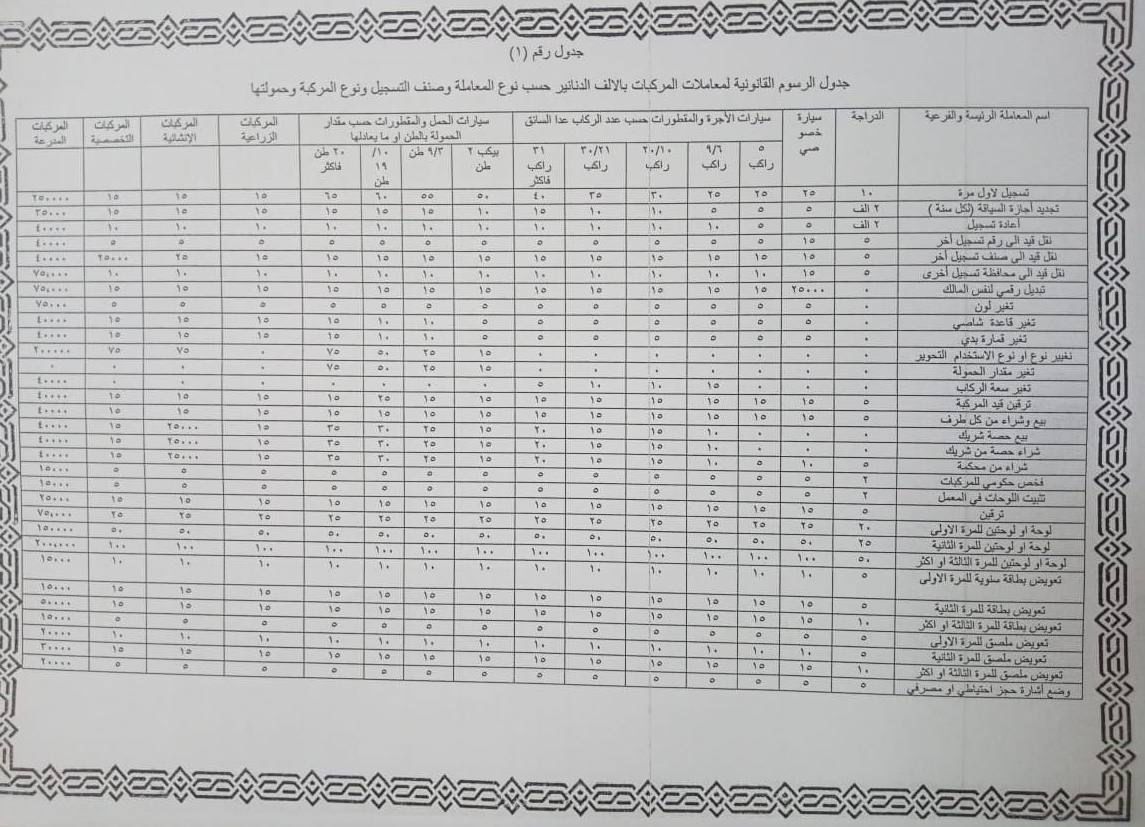 جدول رقم (١)
جدول الرسوم القانونية لمعاملات المركبات بالالف الدنانير حسب نوع المعاملة وصنف التسجيل ونوع المركبة وحمولتها
اسم المعاملة الرئيسة والفرعية الدراجة سيارة خصوصي سيارات الأجرة والمقطورات حسب عدد الركاب عدا السائق سيارات الحمل والمقطورات حسب مقدار الحمولة بالطن او ما يعادلها المركبات الزراعية المركبات الإنشائية المركبات التخصصية المركبات المدرعة
٥ راكب ٩/٦ راكب ٢٠/١٠ راكب ٣٠/٢١ راكب ٣١ راكب فاكثر بيكب ٢ طن ٩/٣ طن ١٠/ ١٩ طن ٢٠ طن فاكثر
تسجيل لاول مرة ١٠ ٢٥ ٢٥ ٢٥ ٣٠ ٣٥ ٤٠ ٥٠ ٥٥ ٦٠ ٦٥ ١٥ ١٥ ١٥ ٢٥٠٠٠٠
تجديد أجازة السياقة (لكل سنة ) ٢ الف ٥ ٥ ٥ ١٠ ١٠ ١٥ ١٠ ١٥ ١٥ ١٥ ١٥ ١٥ ١٥ ٣٥٠٠٠
أعادة تسجيل ٢ الف ٥ ٥ ١٠ ١٠ ١٠ ١٠ ١٠ ١٠ ١٠ ١٠ ١٠ ١٠ ١٠ ٤٠٠٠٠
نقل قيد الى رقم تسجيل أخر ٥ ١٥ ٥ ٥ ٥ ٥ ٥ ٥ ٥ ٥ ٥ ٥ ٥ ٥ ٤٠٠٠٠
نقل قيد الى صنف تسجيل أخر ٥ ١٥ ١٥ ١٥ ١٥ ١٥ ١٥ ١٥ ١٥ ١٥ ١٥ ١٥ ٢٥ ٢٥٠٠٠ ٤٠٠٠٠
نقل قيد الى محافظة تسجيل أخرى ٥ ١٥ ١٠ ١٠ ١٠ ١٠ ١٠ ١٠ ١٠ ١٠ ١٠ ١٠ ١٠ ١٠ ٧٥,٠٠٠
تبديل رقمي لنفس المالك ٠ ٢٥٠٠٠ ١٥ ١٥ ١٥ ١٥ ١٥ ١٥ ١٥ ١٥ ١٥ ١٥ ١٥ ١٥ ٧٥,٠٠٠
تغير لون ٠ ٥ ٥ ٥ ٥ ٥ ٥ ٥ ٥ ٥ ٥ ٥ ٥ ٥ ٧٥٠٠٠
تغير قاعدة شاصي ٠ ٥ ٥ ٥ ٥ ٥ ٥ ٥ ١٠ ١٠ ١٥ ١٥ ١٥ ١٥ ٤٠٠٠٠
تغير قمارة بدي ٠ ٥ ٥ ٥ ٥ ٥ ٥ ٥ ١٠ ١٠ ١٥ ١٥ ١٥ ١٥ ٤٠٠٠٠
تغيير نوع او نوع الاستخدام التحوير ٠ ٠ ٠ ٠ ٠ ٠ ٠ ١٥ ٢٥ ٥٠ ٧٥ ٠ ٧٥ ٧٥ ٢٠٠٠٠٠
تغير مقدار الحمولة ٠ ٠ ٠ ٠ ٠ ٠ ٠ ١٥ ٢٥ ٥٠ ٧٥ ٠ ٠ ٠ ٠
تغير سعة الركاب ٠ ٠ ٠ ١٥ ١٠ ١٠ ٥ ٠ ٠ ٠ ٠ ٠ ٠ ٠ ٤٠٠٠٠
ترقين قيد المركبة ٥ ١٥ ١٥ ١٥ ١٥ ١٥ ١٥ ١٥ ١٥ ٢٥ ١٥ ١٥ ١٥ ١٥ ٤٠٠٠٠
بيع وشراء من كل طرف ٥ ١٥ ١٥ ١٥ ١٥ ١٥ ١٥ ١٥ ١٥ ١٥ ١٥ ١٥ ١٥ ١٥ ٤٠٠٠٠
بيع حصة شريك ٠ ٠ ٠ ١٠ ١٠ ١٥ ٢٠ ١٥ ٢٥ ٣٠ ٣٥ ١٥ ٢٥٠٠٠ ١٥ ٤٠٠٠٠
شراء حصة من شريك ٠ ٠ ٠ ١٠ ١٥ ١٥ ٢٠ ١٥ ٢٥ ٣٠ ٣٥ ١٥ ٢٥٠٠٠ ١٥ ٤٠٠٠٠
شراء من محكمة ٥ ١٠ ٥ ١٠ ١٥ ١٥ ٢٠ ١٥ ٢٥ ٣٠ ٣٥ ١٥ ٢٥٠٠٠ ١٥ ٤٠٠٠٠
فحص حكومي للمركبات ٢ ٥ ٥ ٥ ٥ ٥ ٥ ٥ ٥ ٥ ٥ ٥ ٥ ٥ ١٥٠٠٠
تثبيت اللوحات في المعمل ٢ ٥ ٥ ٥ ٥ ٥ ٥ ٥ ٥ ٥ ٥ ٥ ٥ ٥ ١٥٠٠٠
ترقين ٥ ١٥ ١٥ ١٥ ١٥ ١٥ ١٥ ١٥ ١٥ ١٥ ١٥ ١٥ ١٥ ١٥ ٢٥٠٠٠
لوحة او لوحتين للمرة الاولى ٢٠ ٢٥ ٢٥ ٢٥ ٢٥ ٢٥ ٢٥ ٢٥ ٢٥ ٢٥ ٢٥ ٢٥ ٢٥ ٢٥ ٧٥,٠٠٠
لوحة او لوحتين للمرة الثانية ٢٥ ٥٠ ٥٠ ٥٠ ٥٠ ٥٠ ٥٠ ٥٠ ٥٠ ٥٠ ٥٠ ٥٠ ٥٠ ٥٠ ١٥٠٠٠٠
لوحة او لوحتين للمرة الثالثة او اكثر ٥٠ ١٠٠ ١٠٠ ١٠٠ ١٠٠ ١٠٠ ١٠٠ ١٠٠ ١٠٠ ١٠٠ ١٠٠ ١٠٠ ١٠٠ ١٠٠ ٢٠٠,٠٠٠
تعويض بطاقة سنوية للمرة الاولى ٥ ١٠ ١٠ ١٠ ١٠ ١٠ ١٠ ١٠ ١٠ ١٠ ١٠ ١٠ ١٠ ١٠ ١٥٠٠٠
تعويض بطاقة للمرة الثانية ٥ ١٥ ١٥ ١٥ ١٥ ١٥ ١٥ ١٥ ١٥ ١٥ ١٥ ١٥ ١٥ ١٥ ١٥٠٠٠
تعويض بطاقة للمرة الثالثة او اكثر ١٠ ١٥ ١٥ ١٥ ١٥ ١٥ ١٥ ١٥ ١٥ ١٥ ١٥ ١٥ ١٥ ١٥ ٥٠٠٠٠
تعويض ملصق للمرة الاولى ٥ ٥ ٥ ٥ ٥ ٥ ٥ ٥ ٥ ٥ ٥ ٥ ٥ ٥ ١٥٠٠٠
تعويض ملصق للمرة الثانية ٥ ١٠ ١٠ ١٠ ١٠ ١٠ ١٠ ١٠ ١٠ ١٠ ١٠ ١٠ ١٠ ١٠ ٢٠٠٠٠
تعويض ملصق للمرة الثالثة او اكثر ١٠ ١٥ ١٥ ١٥ ١٥ ١٥ ١٥ ١٥ ١٥ ١٥ ١٥ ١٥ ١٥ ١٥ ٣٠٠٠٠
وضع أشارة حجز احتياطي او مصرفي ٥ ٥ ٥ ٥ ٥ ٥ ٥ ٥ ٥ ٥ ٥ ٥ ٥ ٥ ٢٠٠٠٠